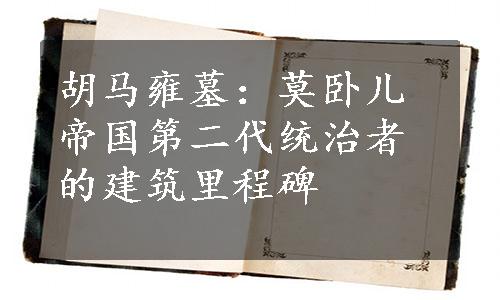 胡马雍墓：莫卧儿
帝国第二代统治者
的建筑里程碑